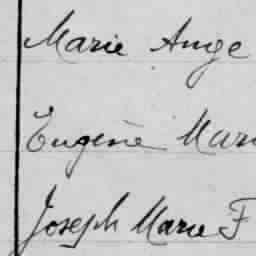 Marie Ange
Eugène Mari
Joseph Marie F